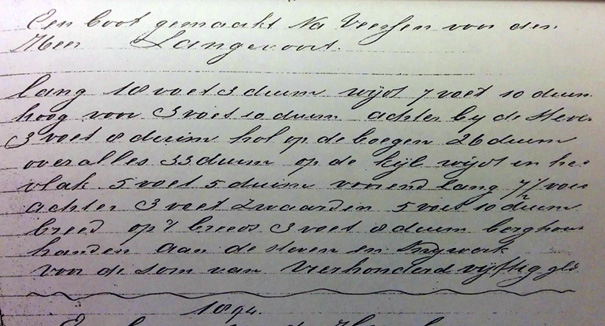 Een boot gemaakt Na Veessen voor den
Heer Langevoort.
lang 18 voet 3 duim wijdt 7 voet 10 duim
hoog voor 3 voet 10 duim achter by de steve
3 voet 8 duim hol op de boegen 26 duim
over alles 33 duim op de kijl wijdt in het
vlak 5 voet 5 duim voorend lang 7½ voet
achter 3 voet zwaarden 5 voet 10 duim
breed op 't breeds 3 voet 8 duim berghout
handen aan de steven en
voor de som van Vierhonderd vijftig gld
1894.